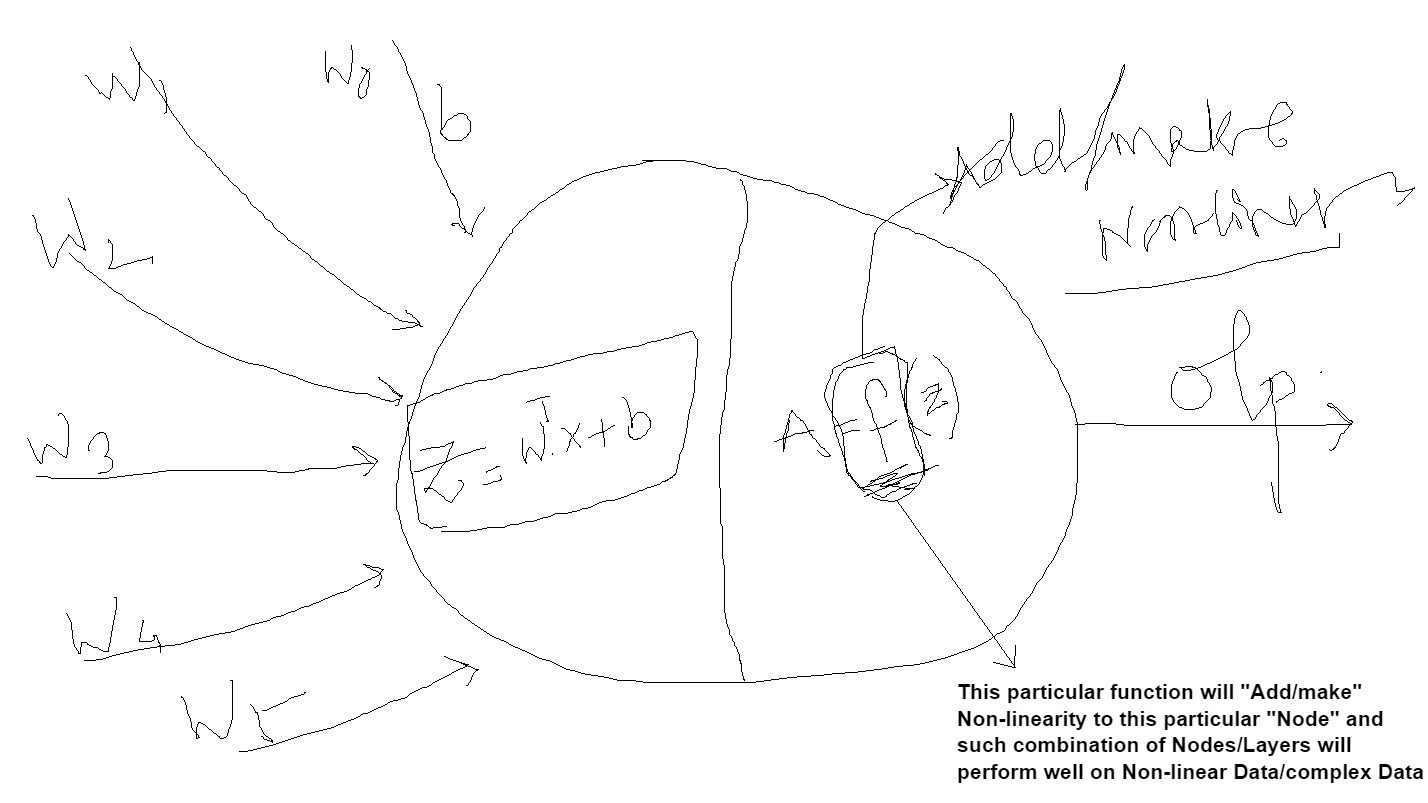 W1
W0
b
W2
W3
W4
W5
Z = W^T.x+b
A = f(z)
Add/make
Non-liner
o/p
This particular function will "Add/make"
Non-linearity to this particular "Node" and
such combination of Nodes/Layers will
perform well on Non-linear Data/complex Data